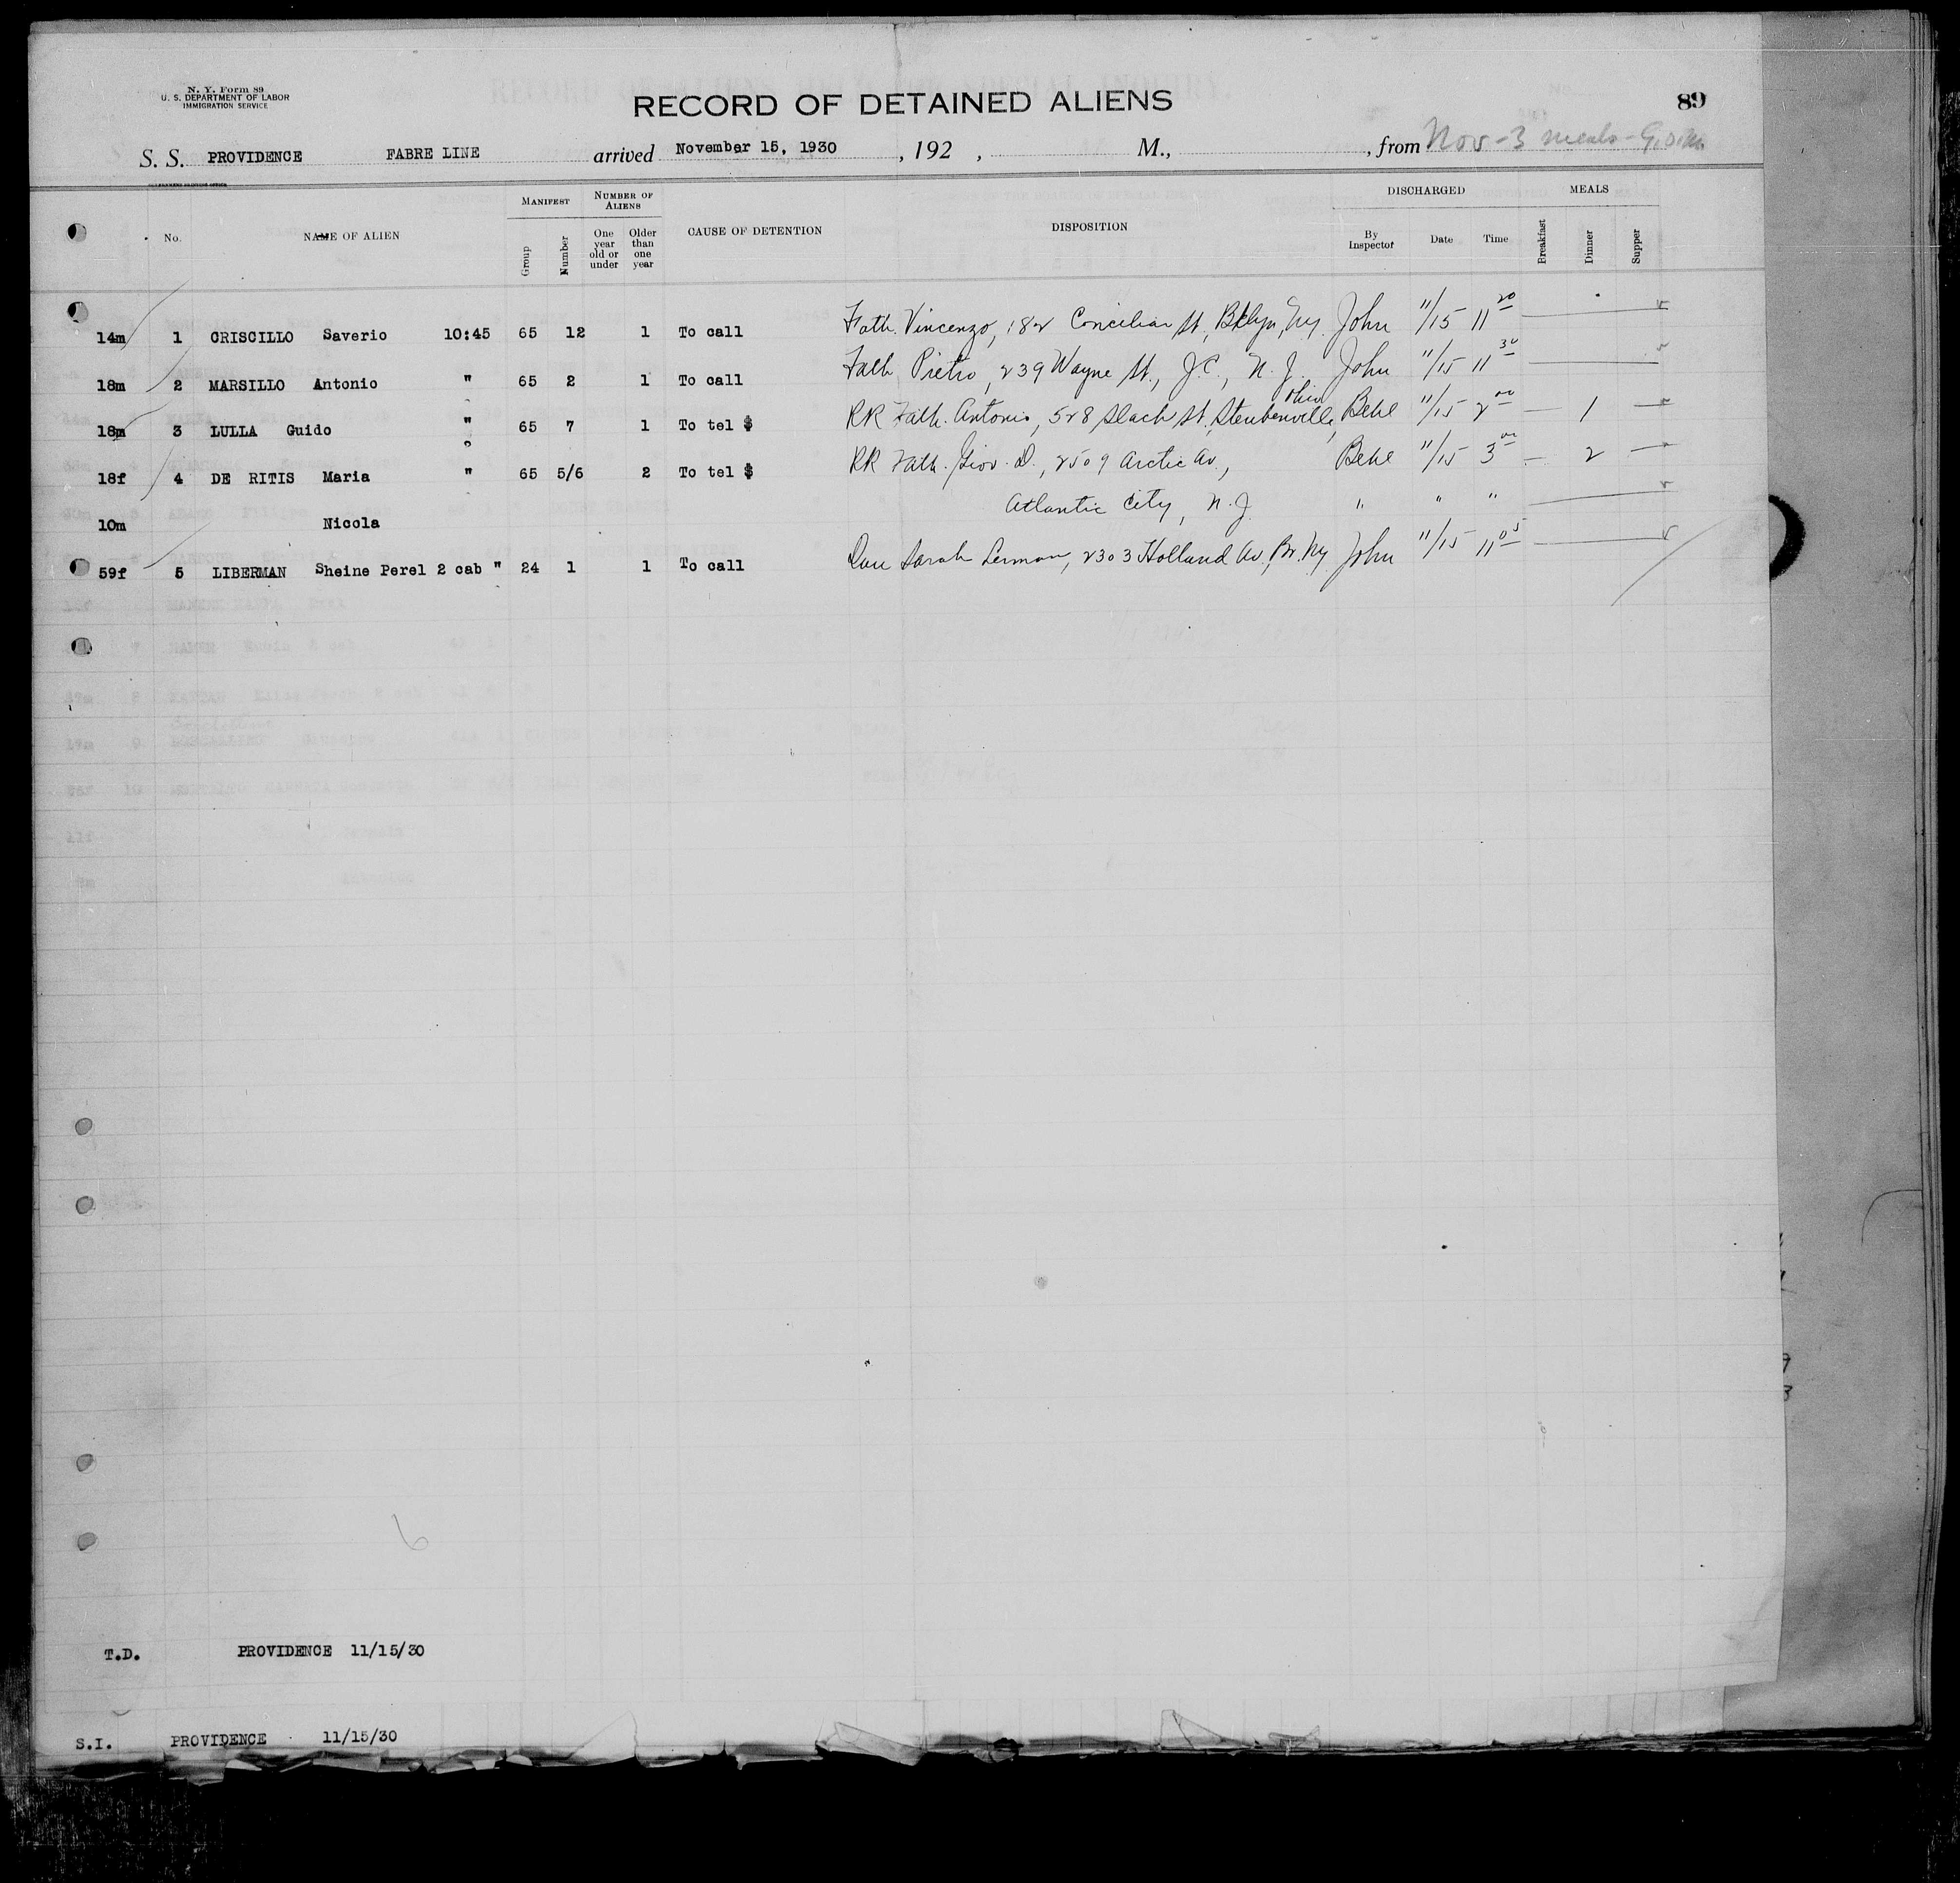 N. Y. Form 89
U. S. DEPARTMENT OF LABOR
IMMIGRATION SERVICE
RECORD OF DETAINED ALIENS
89
S. S. PROVIDENCE FABRE LINE arrived November 15, 1930 , 192 , M., , from Nov-3 meals-
GOVERNMENT PRINTING OFFICE
No. NAME OF ALIEN MANIFEST Group Number NUMBER OF ALIENS One year old or under Older than one year CAUSE OF DETENTION DISPOSITION DISCHARGED By Inspector Date Time MEALS Breakfast Dinner Supper
14m 1 CRISCILLO Saverio 10:45 65 12 1 To call Fath. Vincenzo, 182 St, Bklyn, Ny. John 11/15 11 20
18m 2 MARSILLO Antonio " 65 2 1 To call Fath Pietro, 239 Wayne St., J.C., N.J. John 11/15 11 30
18m 3 LULLA Guido " 65 7 1 To tel $ RR Fath. Antonio, 528 Slack St. Steubenville, Ohio 11/15 2 00 — 1 —
18f 4 DE RITIS Maria " 65 5/6 2 To tel $ RR Fath. Giov. D., 2509 Arctic Av., 11/15 3 00 — 2 —
10m Nicola Atlantic City, N.J. " " "
59f 5 LIBERMAN Sheine Perel 2 cab " 24 1 1 To call Dau Sarah Lerman, 2303 Holland Av., Bx. Ny John 11/15 11 05
6
T.D. PROVIDENCE 11/15/30
S.I. PROVIDENCE 11/15/30